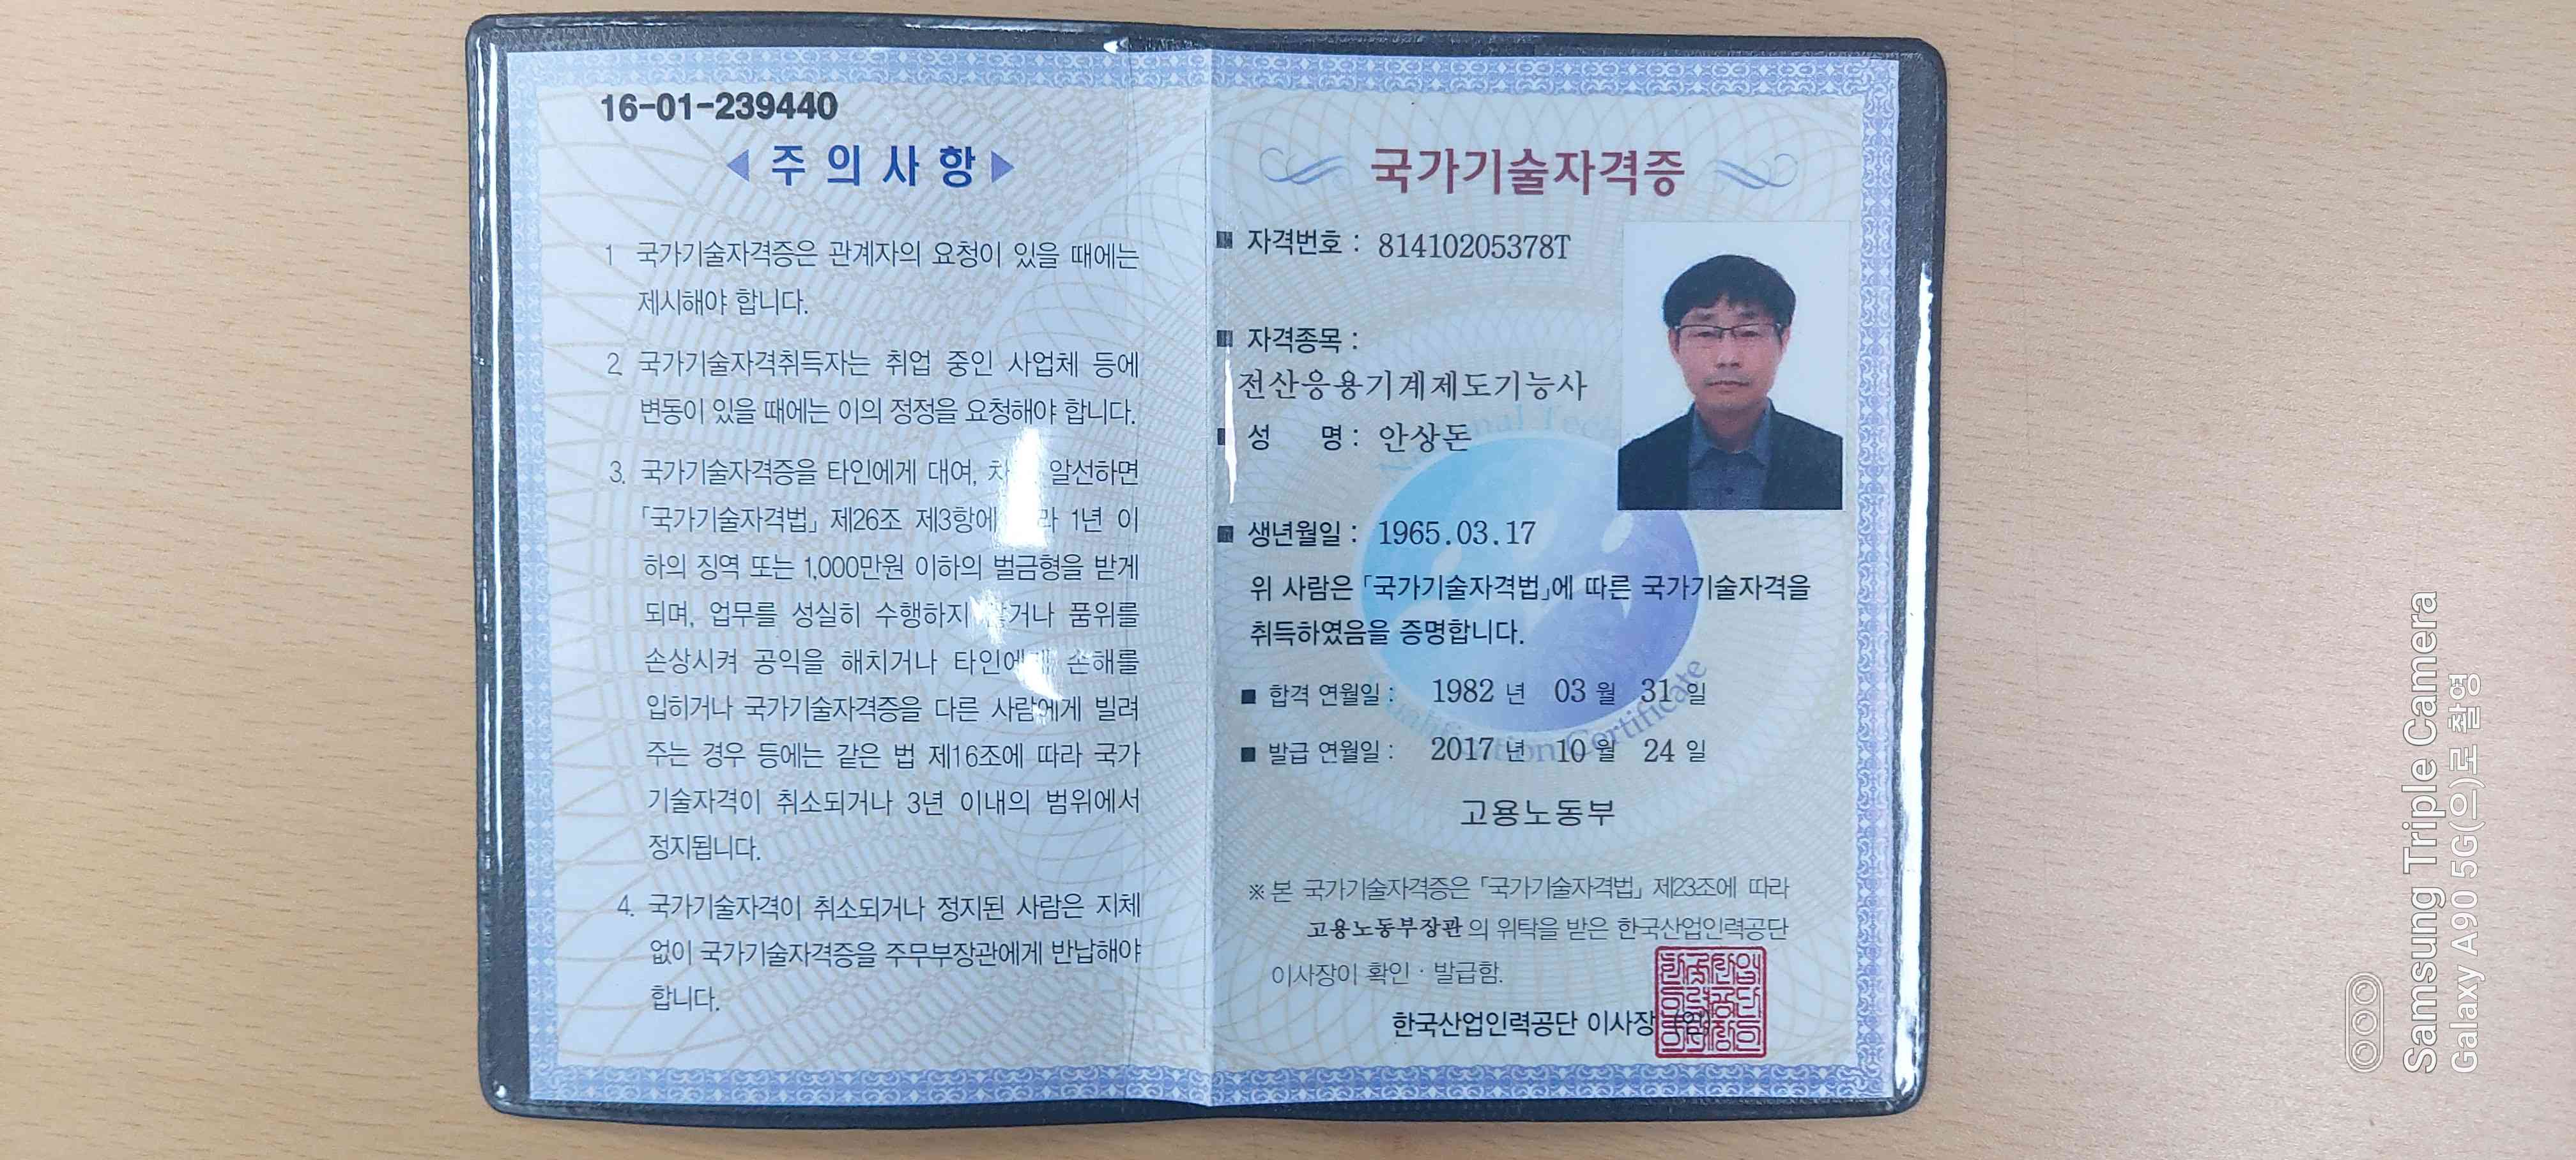 16-01-239440
◀ 주의사항 ▶
1 국가기술자격증은 관계자의 요청이 있을 때에는
제시해야 합니다.
2. 국가기술자격취득자는 취업 중인 사업체 등에
변동이 있을 때에는 이의 정정을 요청해야 합니다.
3. 국가기술자격증을 타인에게 대여, 알선하면
「국가기술자격법」 제26조 제3항에 1년 이
하의 징역 또는 1,000만원 이하의 벌금형을 받게
되며, 업무를 성실히 수행하지 품위를
손상시켜 공익을 해치거나 손해를
입히거나 국가기술자격증을 다른 사람에게 빌려
주는 경우 등에는 같은 법 제16조에 따라 국가
기술자격이 취소되거나 3년 이내의 범위에서
정지됩니다.
4. 국가기술자격이 취소되거나 정지된 사람은 지체
없이 국가기술자격증을 주무부장관에게 반납해야
합니다.
국가기술자격증
■ 자격번호 : 81410205378T
■ 자격종목 :
전산응용기계제도기능사
■ 성 명 : 안상돈
■ 생년월일 : 1965.03.17
위 사람은 「국가기술자격법」에 따른 국가기술자격을
취득하였음을 증명합니다.
■ 합격 연월일 : 1982 년 03 월 31 일
■ 발급 연월일 : 2017 년 10 월 24 일
고용노동부
※ 본 국가기술자격증은 「국가기술자격법」 제23조에 따라
고용노동부장관 의 위탁을 받은 한국산업인력공단
이사장이 확인 · 발급함.
한국산업인력공단 이사장
Samsung Triple Camera
Galaxy A90 5G(으)로 촬영